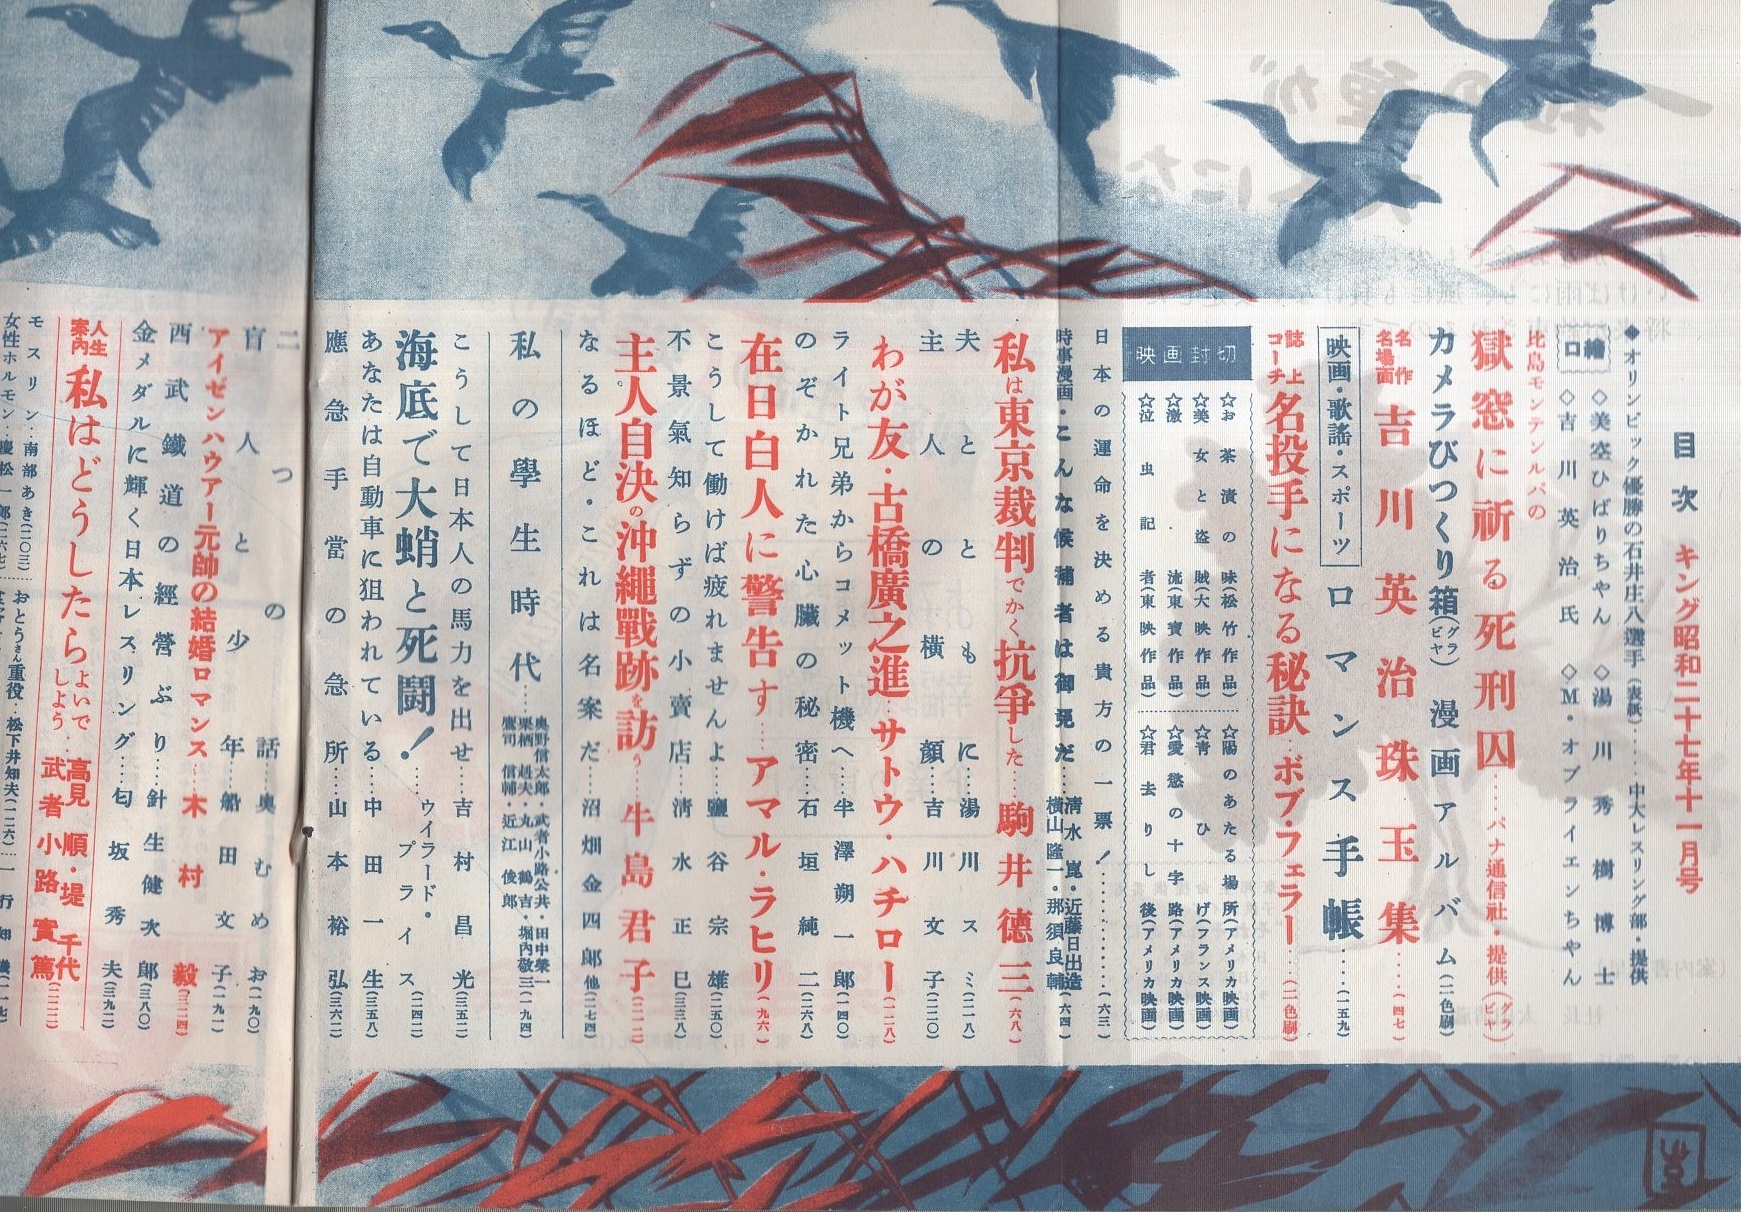 目次 キング昭和二十七年十一月号
◆オリンピック優勝の石井庄八選手(表紙)…中大レスリング部・提供
口繪
◇美空ひばりちゃん ◇湯川秀樹博士
◇吉川英治氏 ◇M・オブライエンちゃん
比島モンテンルパの
獄窓に祈る死刑囚……パナ通信社・提供(グラビヤ)
カメラびつくり箱(グラビヤ) 漫画アルバム(二色刷)
名作名場面 吉川英治珠玉集……(四七)
映画・歌謡・スポーツ ロマンス手帳……(一五九)
誌上コーチ 名投手になる秘訣…ボブ・フェラー……(二色刷)
映画封切
☆お茶漬の味(松竹作品) ☆陽のあたる場所(アメリカ映画)
☆美女と盗賊(大映作品) ☆青ひげ(フランス映画)
☆激流(東寶作品) ☆愛慾の十字路(アメリカ映画)
☆泣虫記者(東映作品) ☆君去りし後(アメリカ映画)
日本の運命を決める貴方の一票!……(六三)
時事漫画・こんな候補者は御免だ…清水崑・近藤日出造 横山隆一・那須良輔(六四)
私は東京裁判でかく抗争した……駒井德三(六八)
夫とともに……湯川スミ(二一八)
主人の横顔……吉川文子(二二〇)
わが友・古橋廣之進…サトウ・ハチロー(一二八)
ライト兄弟からコメット機へ…半澤朔一郎(一四〇)
のぞかれた心臓の秘密…石垣純二(二六八)
在日白人に警告す……アマル・ラヒリ(九六)
こうして働けば疲れませんよ…鹽谷宗雄(二五〇)
不景氣知らずの小賣店…清水正巳(三三八)
主人自決の沖繩戰跡を訪う…牛島君子(二一二)
なるほど・これは名案だ…沼畑金四郎他(二七四)
私の學生時代……奥野信太郎・武者小路公共・田中榮一 栗栖赳夫・丸山鶴吉・堀内敬三 鷹司信輔・近江俊郎(一九四)
こうして日本人の馬力を出せ…吉村昌光(三五二)
海底で大蛸と死闘!……ウイラード・プライス(二四二)
あなたは自動車に狙われている…中田一生(三五八)
應急手當の急所…山本裕弘(三六二)
二つの話…奥むめお(一九〇)
盲人と少年…船田文子(一九一)
アイゼンハウアー元帥の結婚ロマンス…木村毅(三二四)
西武鐵道の經營ぶり…針生健次郎(三八〇)
金メダルに輝く日本レスリング…匂坂秀夫(三九二)
人生案内 私はどうしたらよいでしよう…高見順・堤千代 武者小路實篤(二二二)
モスリン…南部あき(二〇三)……おとうさん重役…松下井知夫(一二六)
女性ホルモン…慶松一郎(二六七)